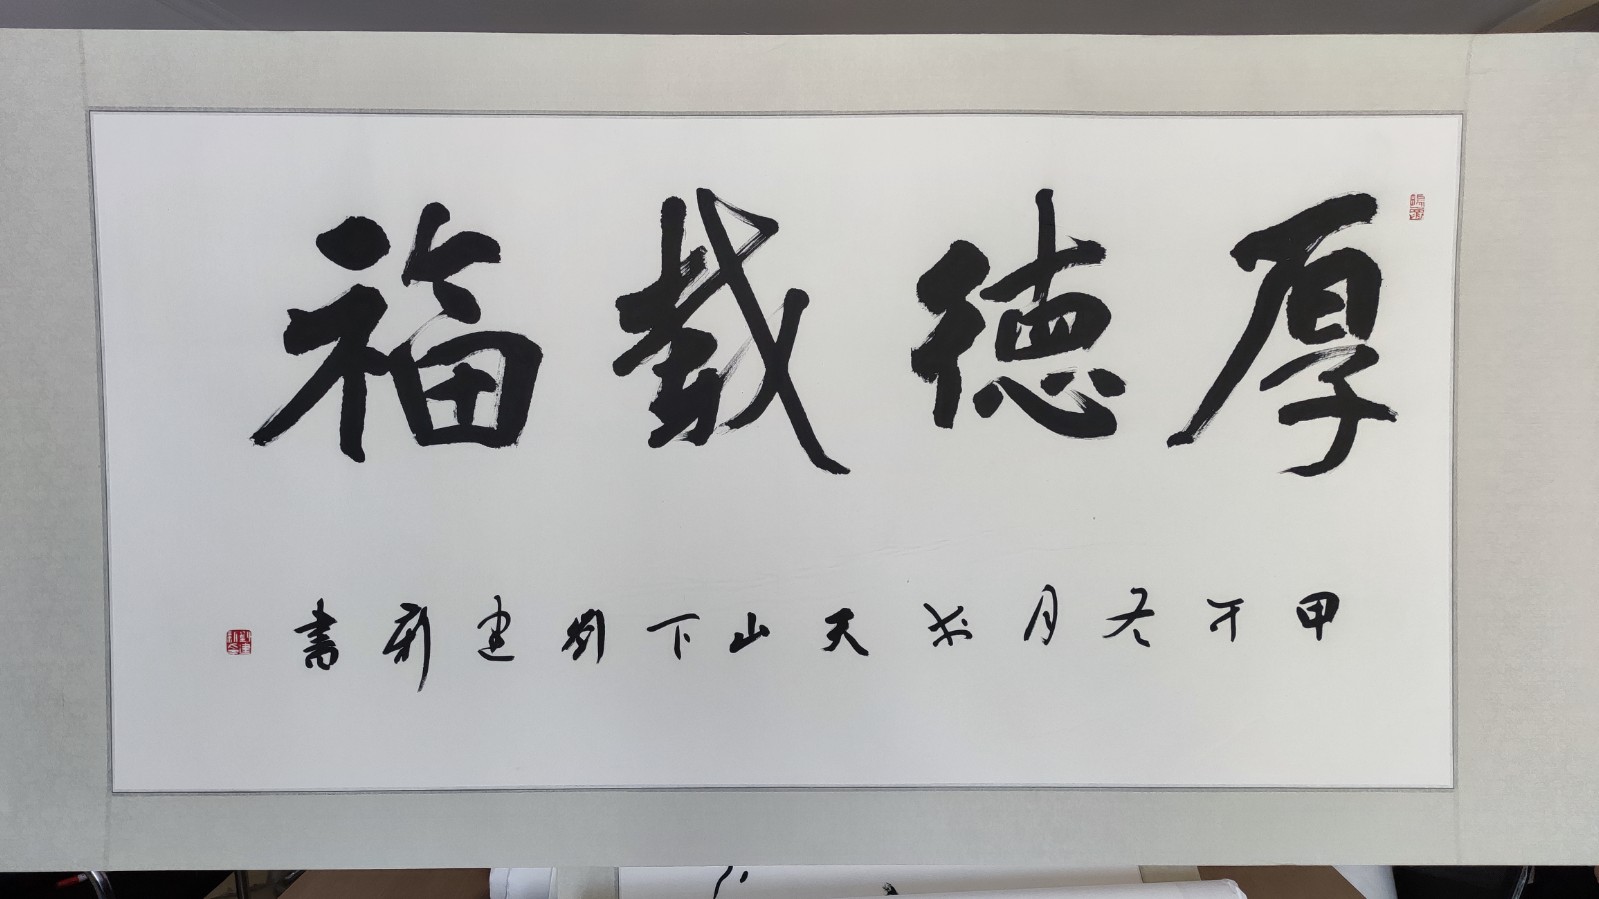 厚德載福
甲午冬月於天山下劉建新書